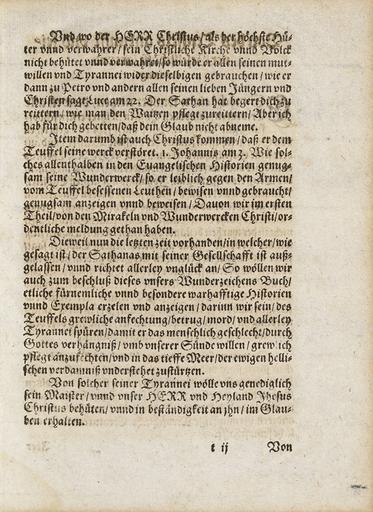 Vnd wo der HERR Christus / als der höchste Hü-
ter vnnd verwahrer / sein Christliche Kirche vnnd Volck
nicht behütet vnnd verwahret / so würde er allen seinen mut-
willen vnd Tyrannei wider dieselbigen gebrauchen / wie er
dann zu Petro vnd andern allen seinen lieben Jüngern vnd
Christen sagt / Luce am 22. Der Sathan hat begert dich zu
reuttern / wie man den Waitzen pflegt zureuttern / Aber ich
hab für dich gebetten / daß dein Glaub nicht abneme.
Item darumb ist auch Christus kommen / daß er dem
Teuffel seine werck zerstöret. 1. Johannis am 3. Wie sol-
ches allenthalben in den Euangelischen Historien genug-
sam seine Wunderwerck / so er leiblich gegen den Armen
vom Teuffel besessenen Leuthen / bewisen vnnd gebraucht /
genugsam anzeigen vnnd beweisen / Dauon wir im ersten
Theil / von den Mirakeln vnd Wunderwercken Christi / or-
dentliche meldung gethan haben.
Dieweil nun die letzten zeit vorhanden / in welcher / wie
gesagt ist / der Sathanas mit seiner Gesellschafft ist auß-
gelassen / vnnd richtet allerley vnglück an / So wöllen wir
auch zum beschluß dieses vnsers Wunderzeichens Buch /
etliche fürnemliche vnnd besondere warhafftige Historien
vnnd Exempla erzelen vnd anzeigen / darinn wir sein / des
Teuffels grewliche anfechtung / betrug / mord / vnd allerley
Tyrannei spüren / damit er das menschlich geschlecht / durch
Gottes verhängniß / vmb vnserer Sünde willen / grewlich
pflegt anzufechten / vnd in das tieffe Meer / der ewigen helli-
schen verdamniß vnderstehet zustürtzen.
Von solcher seiner Tyrannei wölle vns genediglich
sein Maister / vnnd vnser HERR vnd Heyland Jhesus
Christus behüten / vnnd in beständigkeit an jhn / im Glau-
ben erhalten.
t ij Von